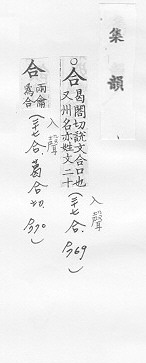 集韻
○合曷閤切說文合口也
又州名亦姓文二十
入聲
(二十七合. P.769)
合兩龠
為合
入聲
(二十七合.葛合切. P.770)